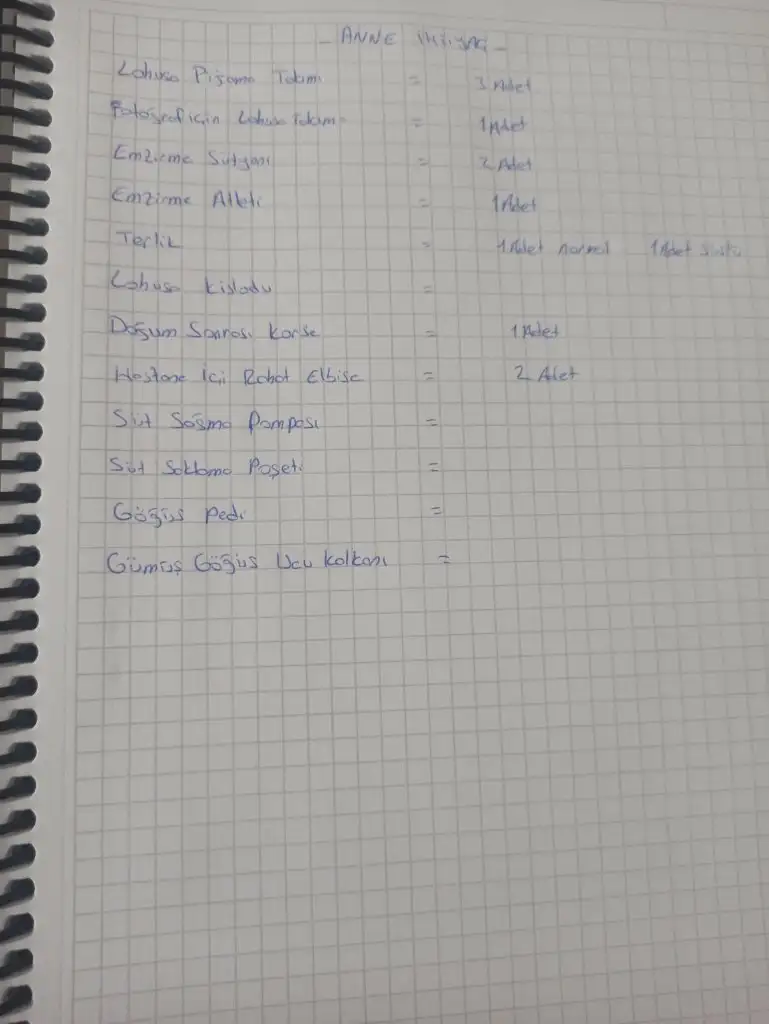 - ANNE İHTİYAÇ -
Lohusa Pijama Takımı = 3 Adet
Fotoğraf için Lohusa Takımı = 1 Adet
Emzirme Sütyeni = 2 Adet
Emzirme Atleti = 1 Adet
Terlik = 1 Adet normal 1 Adet süslü
Lohusa Külodu =
Doğum Sonrası Korse = 1 Adet
Hastane İçi Robot Elbise = 2 Adet
Süt Sağma Pompası =
Süt Saklama Poşeti =
Göğüs Pedi =
Gümüş Göğüs Ucu Kalkanı =